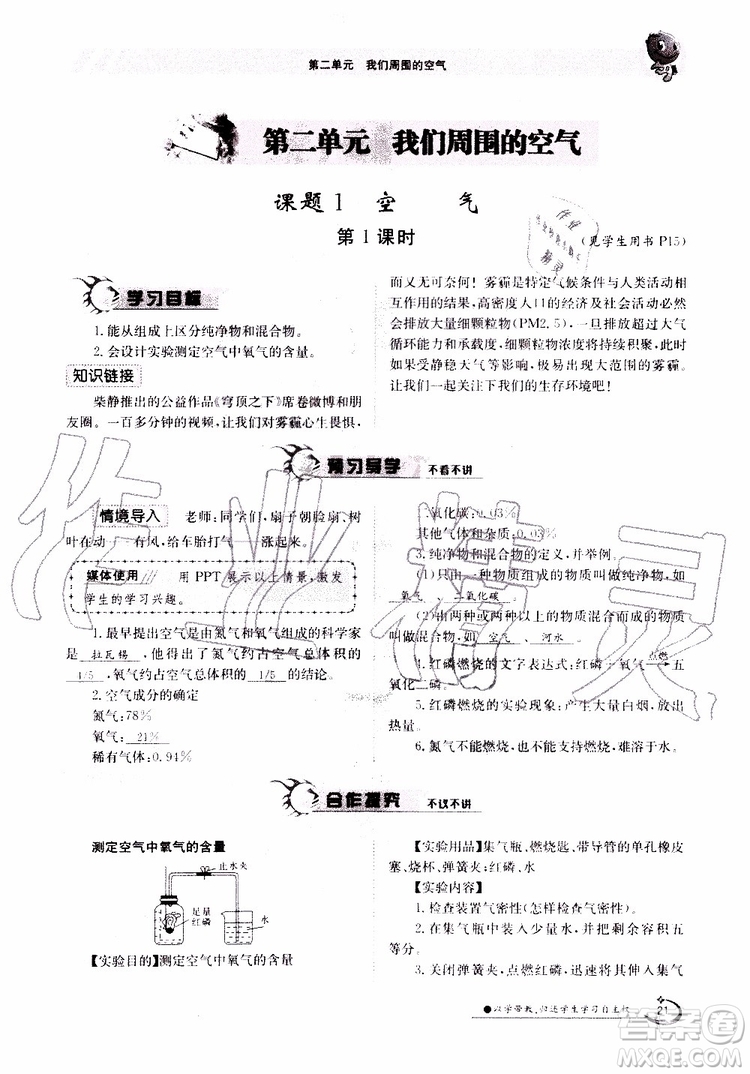 第二单元 我们周围的空气
第二单元 我们周围的空气
课题1 空 气
第1课时
(见学生用书 P15)
学习目标
1.能从组成上区分纯净物和混合物。
2.会设计实验测定空气中氧气的含量。
知识链接
柴静推出的公益作品《穹顶之下》席卷微博和朋
友圈。一百多分钟的视频,让我们对雾霾心生畏惧,
而又无可奈何!雾霾是特定气候条件与人类活动相
互作用的结果,高密度人口的经济及社会活动必然
会排放大量细颗粒物(PM2.5),一旦排放超过大气
循环能力和承载度,细颗粒物浓度将持续积聚,此时
如果受静稳天气等影响,极易出现大范围的雾霾。
让我们一起关注下我们的生存环境吧!
预习导学 不看不讲
情境导入 老师:同学们,扇子朝脸扇、树
叶在动 有风,给车胎打气 涨起来。
媒体使用 用 PPT 展示以上情景,激发
学生的学习兴趣。
1.最早提出空气是由氮气和氧气组成的科学家
是 拉瓦锡 ,他得出了氮气约占空气总体积的
1/5 ,氧气约占空气总体积的 1/5 的结论。
2.空气成分的确定
氮气:78%
氧气: 21%
稀有气体:0.94%
二氧化碳: 0.03%
其他气体和杂质:0.03%
3.纯净物和混合物的定义,并举例。
(1)只由一种物质组成的物质叫做纯净物,如
氧气 、 二氧化碳 。
(2)由两种或两种以上的物质混合而成的物质
叫做混合物,如 空气 、 河水 。
4.红磷燃烧的文字表达式:红磷+氧气 点燃→ 五
氧化二磷。
5.红磷燃烧的实验现象:产生大量白烟,放出
热量。
6.氮气不能燃烧,也不支持燃烧,难溶于水。
合作探究 不议不讲
测定空气中氧气的含量
止水夹
足量
红磷
水
【实验目的】测定空气中氧气的含量
【实验用品】集气瓶、燃烧匙、带导管的单孔橡皮
塞、烧杯、弹簧夹;红磷、水
【实验内容】
1.检查装置气密性(怎样检查气密性)。
2.在集气瓶中装入少量的水,将上方空间分为五
等分。
3.关闭弹簧夹,点燃红磷,迅速将其伸入集气
●以学带教,归还学生学习自主权
21
作业精灵
答案圈
MXQE.COM